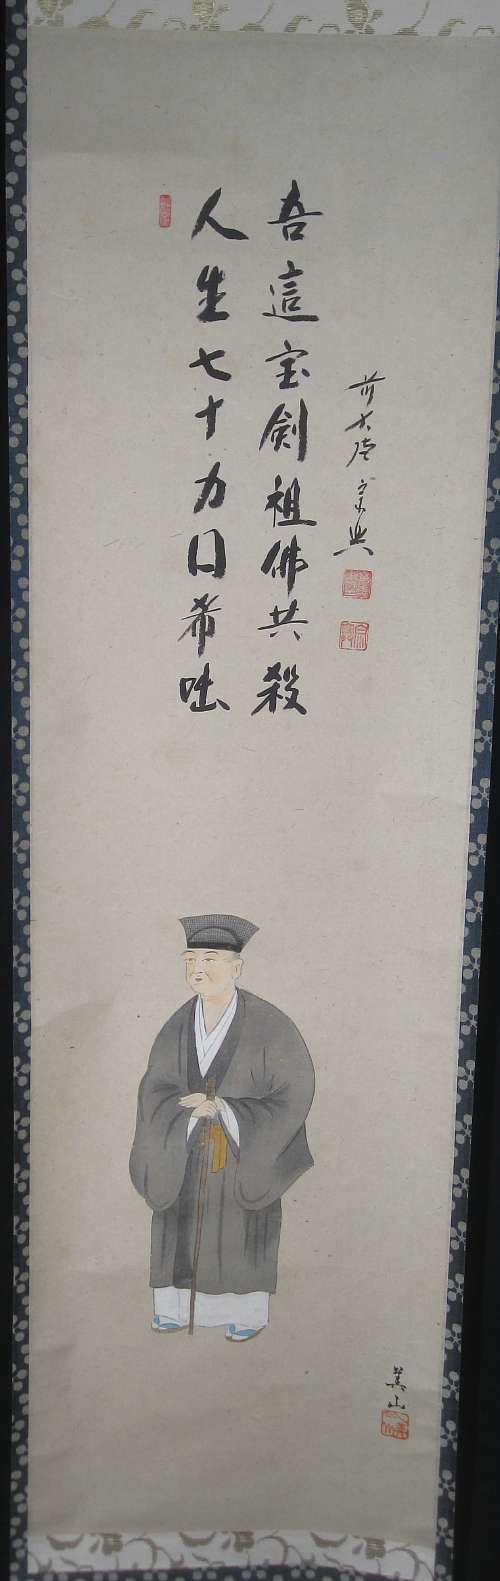 人生七十力囗希咄
吾這宝剣祖佛共殺
前大徳
美山